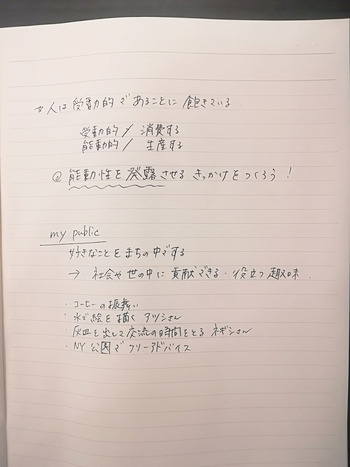 ☆人は受動的であることに飽きている
受動的 / 消費する
能動的 / 生産する
◎ 能動性を発露させるきっかけをつくろう!
my public
好きなことをまちの中でする
→ 社会や世の中に貢献できる・役立つ趣味.
・コーヒーの振舞い
・水で絵を描くアツシさん
・灰皿を出して交流の時間をとるネギシさん
・NY 公園でフリーアドバイス